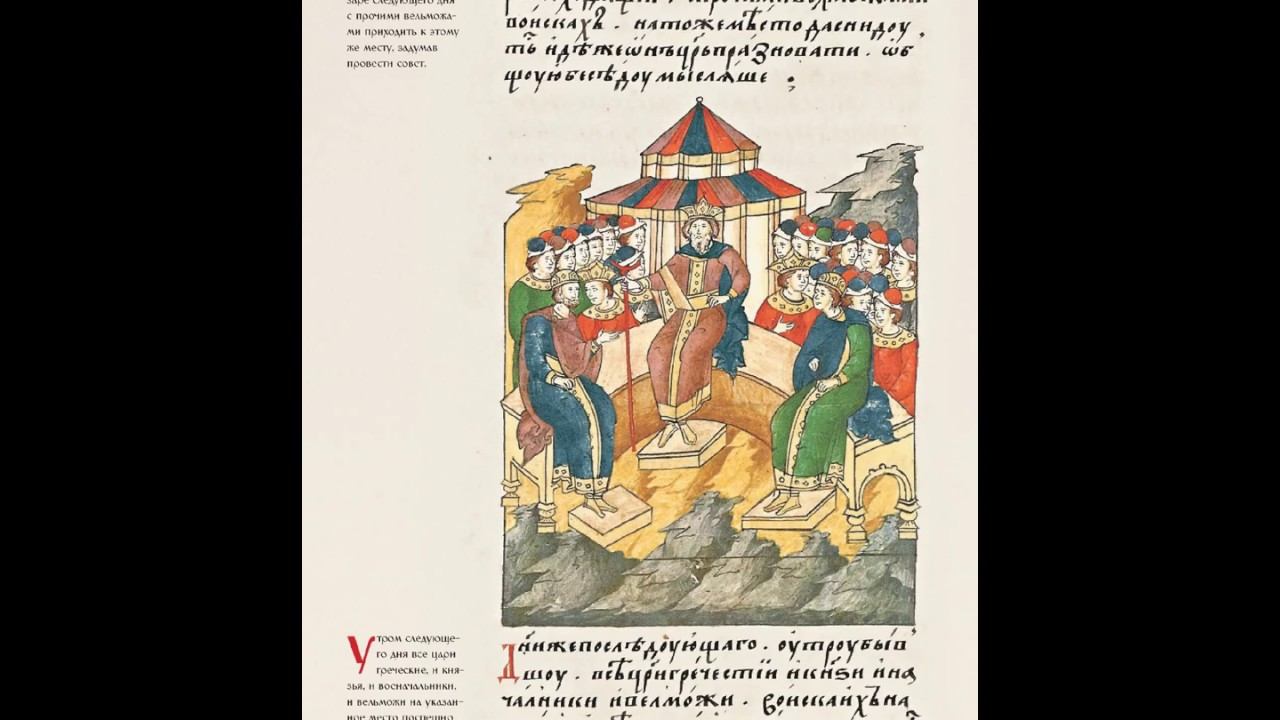 заре следующего дня
с прочими вельможа-
ми приходить к этому
же месту, задумав
провести совет.
воискахъ . натожемѣсто даснидоу
тъ идѣжеѡнъ црь празновати . ѡб
щоую бесѣдоу мысляше
Утром следующе-
го дня все цари
греческие, и кня-
зья, и военачальники,
и вельможи на указан-
ное место поспешно
Дниже послѣдоующаго . оутроу быв
шоу . всѣ цри гречестіи и кнѕи и на
чалники ивелможи . воискаихъ на